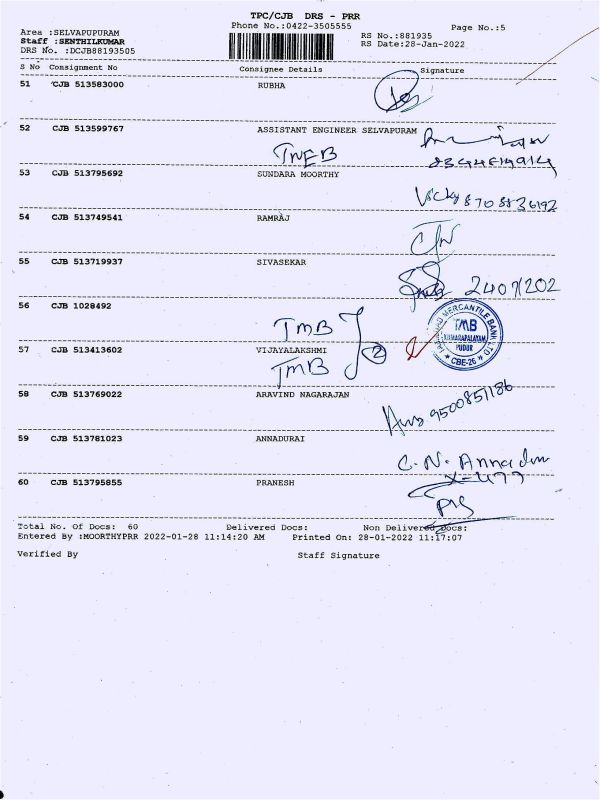 TPC/CJB DRS - PRR
Phone No.:0422-3505555
Page No.:5
Area :SELVAPUPURAM
Staff :SENTHILKUMAR
DRS No. :DCJB88193505
RS No.:881935
RS Date:28-Jan-2022
S No Consignment No Consignee Details Signature
51 CJB 513583000 RUBHA
52 CJB 513599767 ASSISTANT ENGINEER SELVAPURAM
TNEB
53 CJB 513795692 SUNDARA MOORTHY
Vicky 8708836192
54 CJB 513749541 RAMRAJ
55 CJB 513719937 SIVASEKAR
56 CJB 1028492
TMB
MERCANTILE BANK LTD
TMB
PUDUR
CBE-26
57 CJB 513413602 VIJAYALAKSHMI
TMB
2
58 CJB 513769022 ARAVIND NAGARAJAN
9500851186
59 CJB 513781023 ANNADURAI
C. N. Annadurai
60 CJB 513795855 PRANESH
Total No. Of Docs: 60 Delivered Docs: Non Delivered Docs:
Entered By :MOORTHYPRR 2022-01-28 11:14:20 AM Printed On: 28-01-2022 11:17:07
Verified By Staff Signature